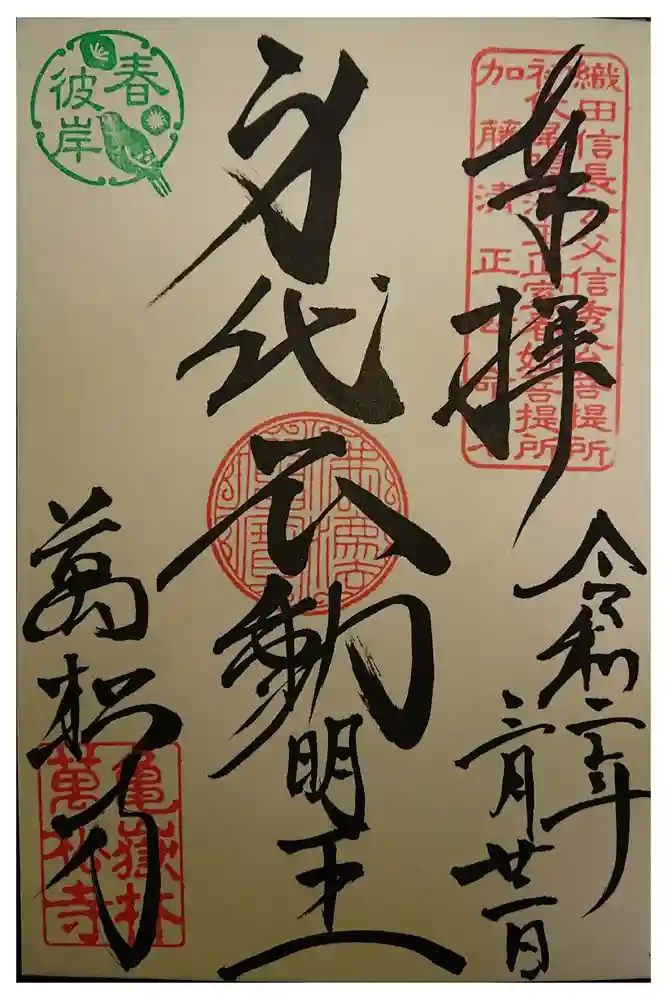 奉拝
令和二年
三月廿一日
織田信長公父信秀公菩提所
加藤清正公
身代不動明王
春
彼岸
萬松寺
亀嶽林
萬松寺